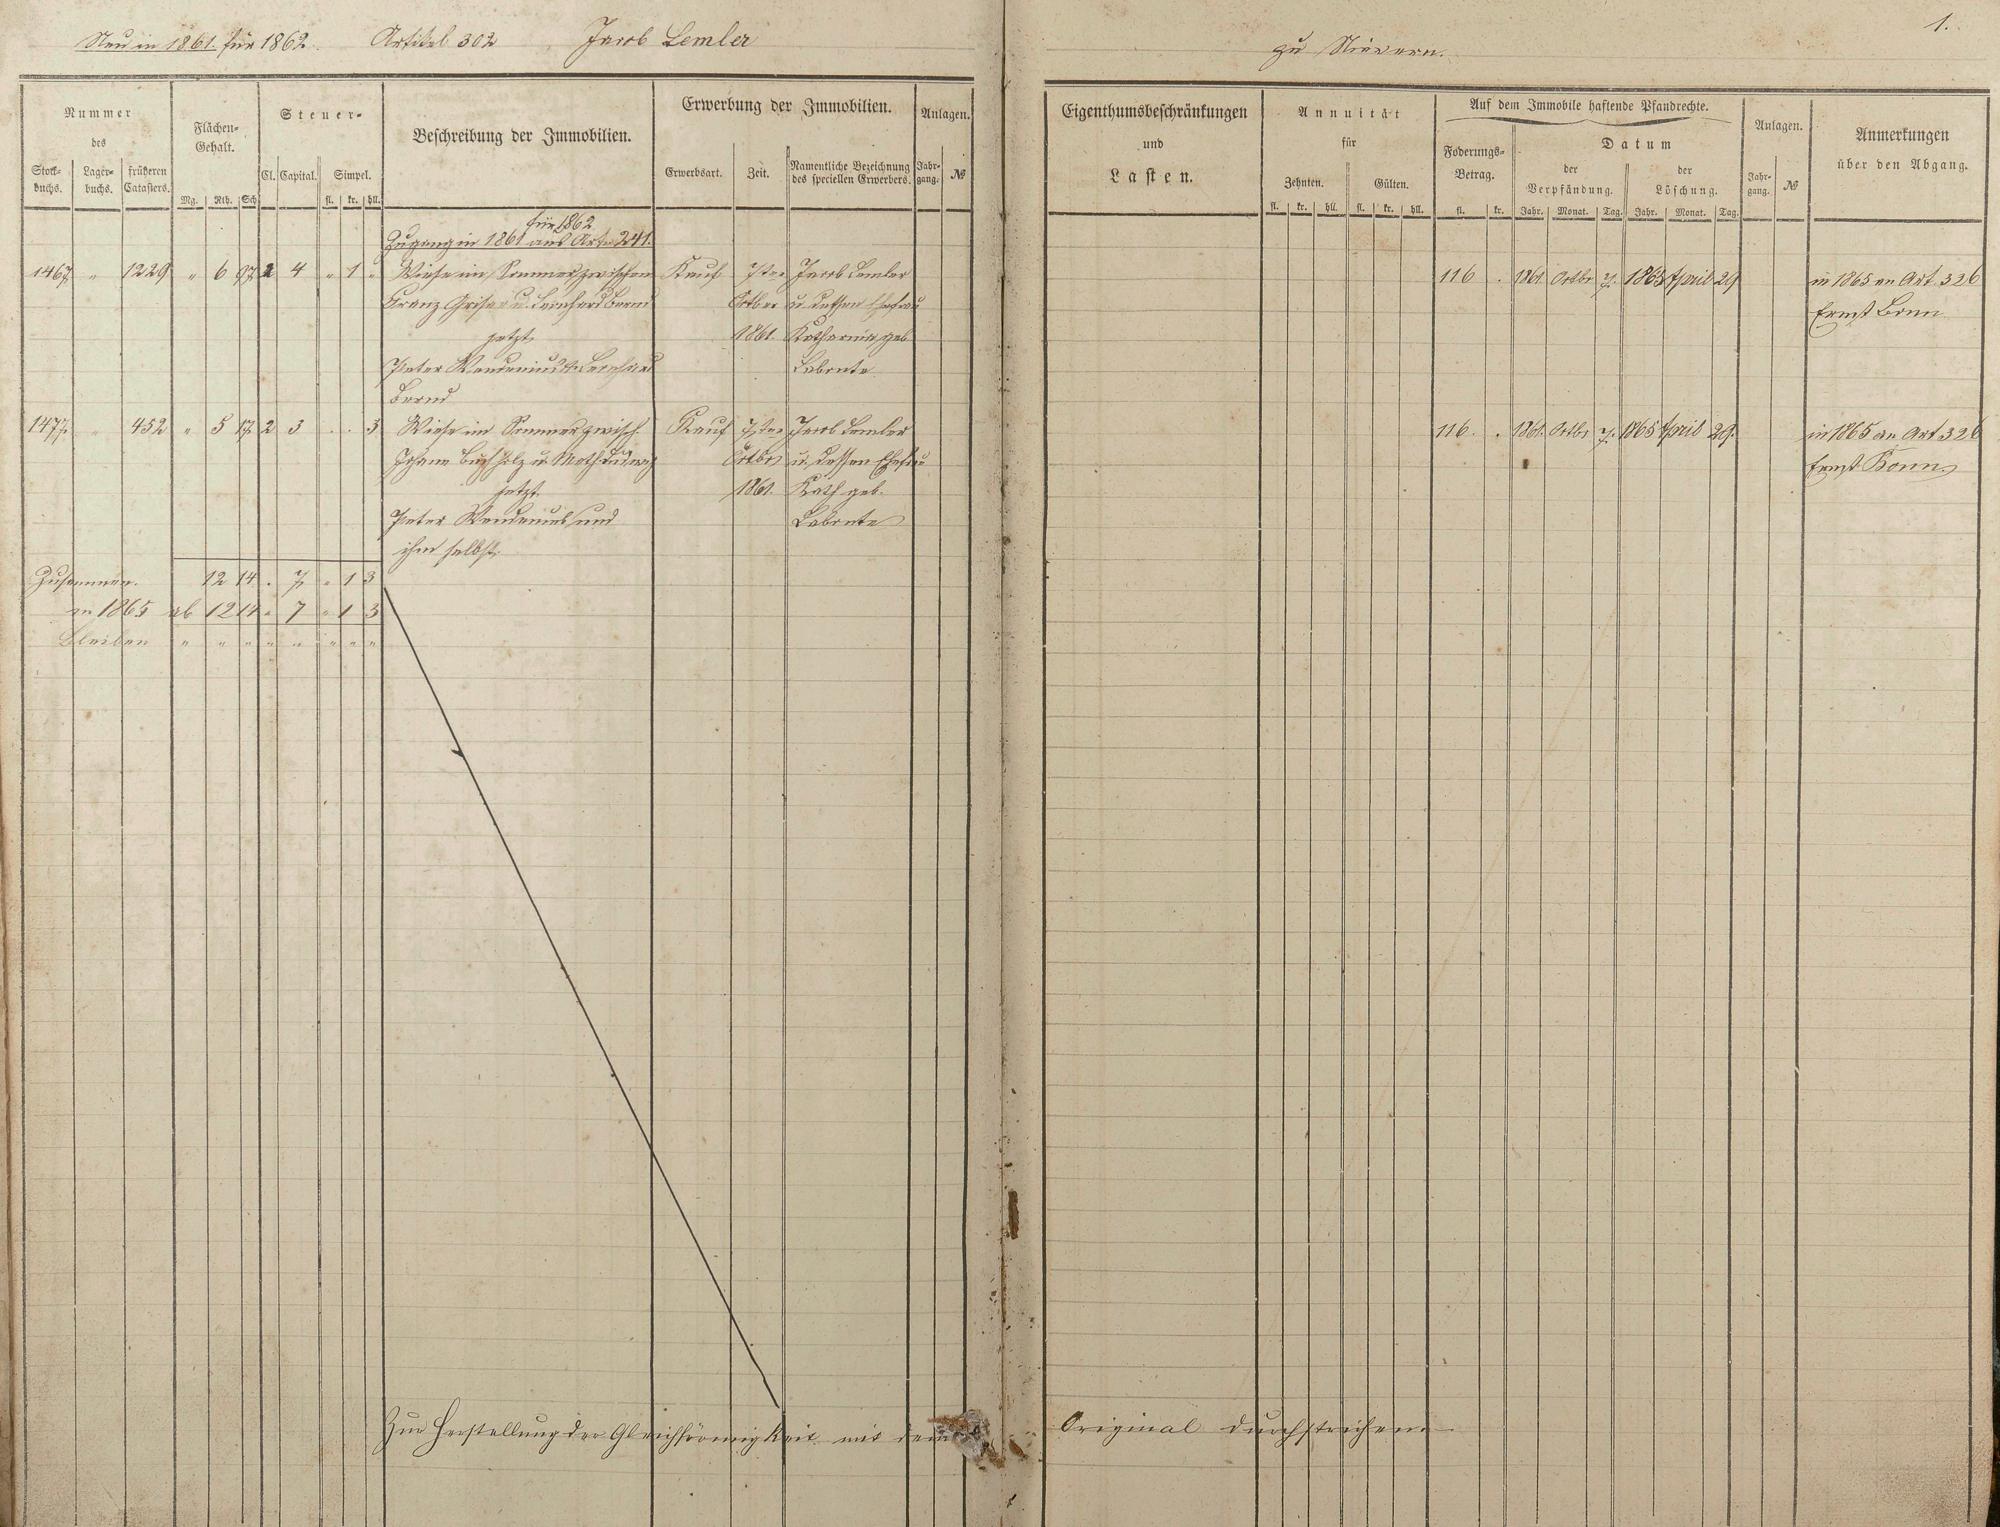 Neu in 1861. für 1862. Artikel 302 Jacob Lemler
zu Nievern. 1.
Nummer
des
Stock-buchs. Lager-buchs. früheren Catasters.
Flächen-Gehalt.
Mg. Rth. Sch.
Steuer-
Cl. Capital. Simpel.
fl. kr. hll.
Beschreibung der Immobilien.
Erwerbung der Immobilien.
Erwerbsart. Zeit. Namentliche Bezeichnung des speciellen Erwerbers.
Anlagen.
Jahr-gang. №
Eigenthumsbeschränkungen
und
Lasten.
Annuität
für
Zehnten. Gülten.
fl. kr. hll. fl. kr. hll.
Auf dem Immobile haftende Pfandrechte.
Foderungs-Betrag.
fl. kr.
Datum
der Verpfändung. der Löschung.
Jahr. Monat. Tag. Jahr. Monat. Tag.
Anlagen.
Jahr-gang. №
Anmerkungen
über den Abgang.
für 1862
Zugang in 1861 aus Art. 241.
1467. " 1229 " 6 97 2 4 " 1 " Wiese im Sommer zwischen Kauf 7ten Jacob Lemler 116 . 1861. Octbr 7. 1865 April 29 in 1865 an Art. 326
Franz Griser u. Leonhard Bernd Octber u. dessen Ehefrau Ernst Bonn
jetzt 1861. Katharina geb.
Peter Wendenius & Leonhard Labonte
Bernd
1477. " 452 " 5 17 2 3 . . 3 Wiese im Sommer zwisch. Kauf 7ten Jacob Lemler 116. . 1861. Octbr 7. 1865 April 29. in 1865 an Art 326
Johann Buchholz u. Math Ludwig Octbr u. dessen Ehefrau Ernst Bonn
jetzt 1861. Kath geb.
Peter Wendenius und Labonte
ihm selbst.
Zusammen. 12 14 . 7 " 1 3
in 1865 ab 12 14 " 7 " 1 3
Bleiben " " " " " " " "
Zur Herstellung der Gleichförmigkeit mit dem Original durchstrichen